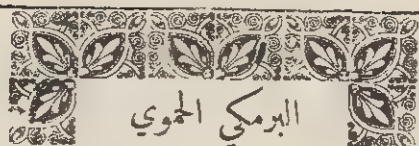 البرمكي الحموي